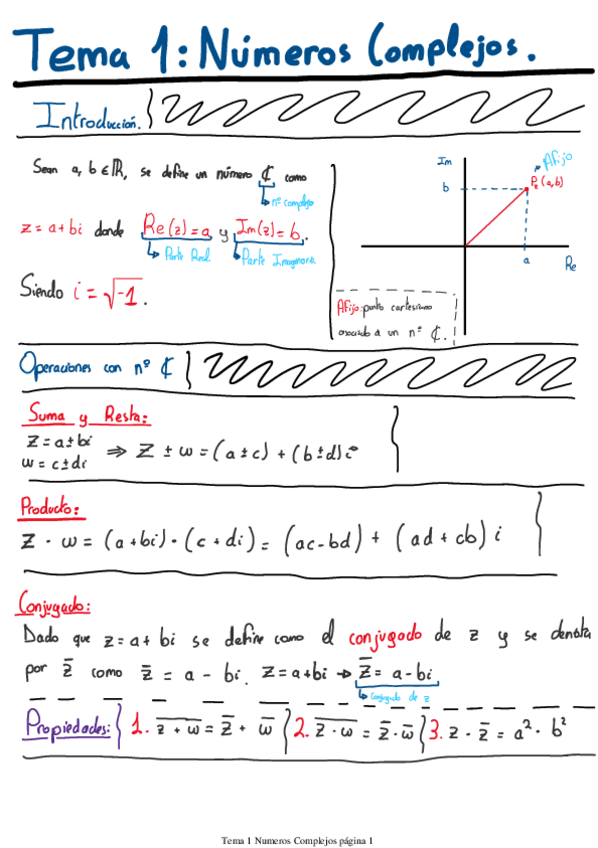 Tema 1: Números Complejos.
Introducción.
Sean a, b ∈ ℝ, se define un número ₵ como
nº complejo
z = a + bi donde Re(z) = a y Im(z) = b.
Parte Real
Parte Imaginaria
Siendo i = √-1.
Im
Afijo
b
P₂(a,b)
a
Re
Afijo: punto cartesiano
asociado a un nº ₵.
Operaciones con nº ₵
Suma y Resta:
z = a ± bi
w = c ± di
⇒ z ± w = (a ± c) + (b ± d)i
Producto:
z · w = (a + bi) · (c + di) = (ac - bd) + (ad + cb) i
Conjugado:
Dado que z = a + bi se define como el conjugado de z y se denota
por z̅ como z̅ = a - bi. z = a + bi → z̅ = a - bi
conjugado de z
Propiedades: 1. z̅ ̅+̅ ̅w̅ = z̅ + w̅ 2. z̅ ̅·̅ ̅w̅ = z̅ · w̅ 3. z · z̅ = a² · b²
Tema 1 Numeros Complejos página 1